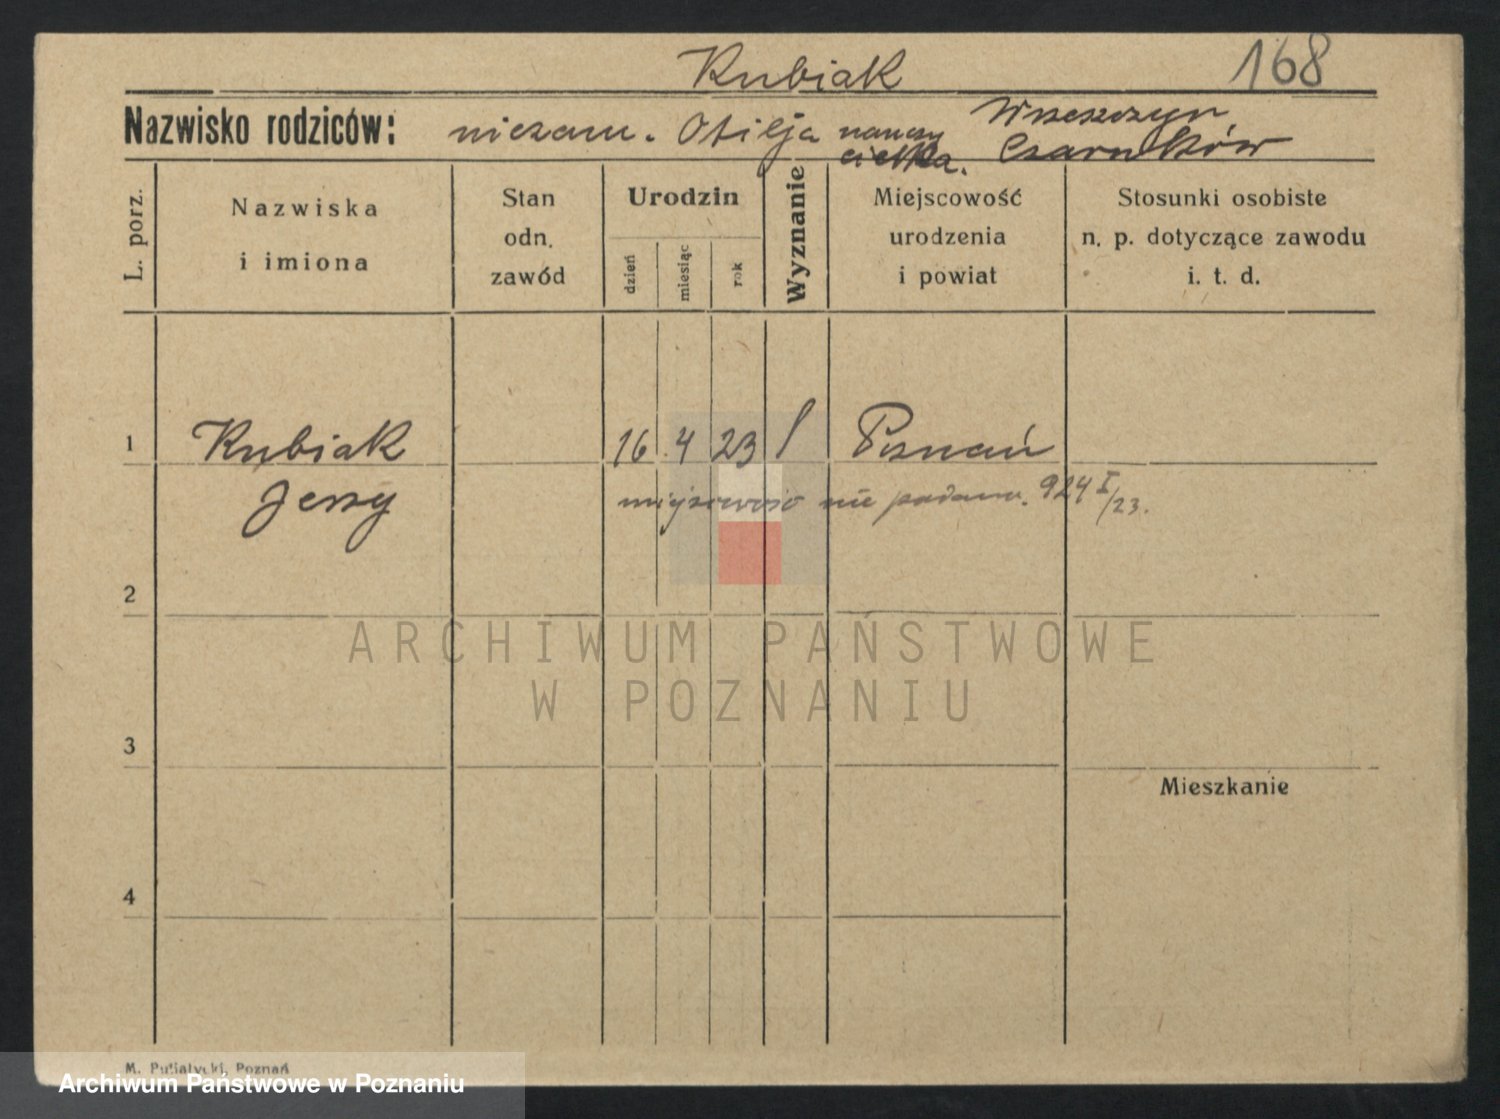 Kubiak 168
Nazwisko rodziców: niezam. Otilja nauczycielka. Wrzeszczyn, Czarnków
L. porz.
Nazwiska i imiona
Stan odn. zawód
Urodzin
dzień
miesiąc
rok
Wyznanie
Miejscowość urodzenia i powiat
Stosunki osobiste n. p. dotyczące zawodu i. t. d.
1 Kubiak 16 4 23 Poznań
Jerzy miejscowość nie podana. 924 I/23.
2
ARCHIWUM PAŃSTWOWE
W POZNANIU
3
Mieszkanie
4
M. Putiatycki, Poznań
Archiwum Państwowe w Poznaniu